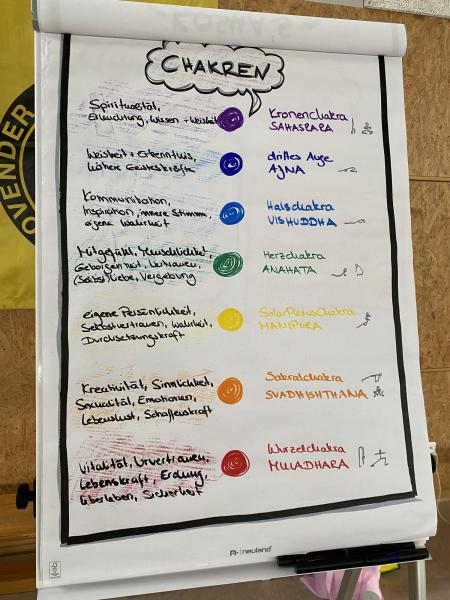 CHAKREN
Spiritualität,
Erleuchtung, Wissen + Weisheit
Kronenchakra
SAHASRARA
Weisheit + Erkenntnis,
höhere Geisteskräfte
drittes Auge
AJNA
Kommunikation,
Inspiration, innere Stimme,
eigene Wahrheit
Halschakra
VISHUDDHA
Mitgefühl, Menschlichkeit,
Geborgenheit, Vertrauen,
(Selbst)liebe, Vergebung
Herzchakra
ANAHATA
eigene Persönlichkeit,
Selbstvertrauen, Wahrheit,
Durchsetzungskraft
SolarPlexusChakra
MANIPURA
Kreativität, Sinnlichkeit,
Sexualität, Emotionen,
Lebenslust, Schaffenskraft
Sakralchakra
SVADHISHTHANA
Vitalität, Urvertrauen,
Lebenskraft, Erdung,
Überleben, Sicherheit
Wurzelchakra
MULADHARA
neuland
OVENDER